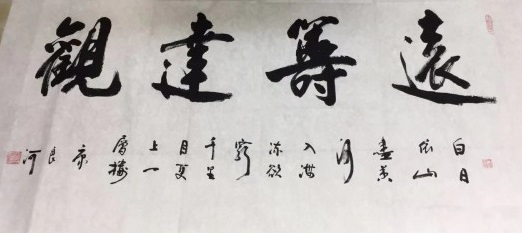 遠籌達觀
白日
依山
盡黄
河
入海
流欲
窮
千里
目更
上一
層樓
良
河